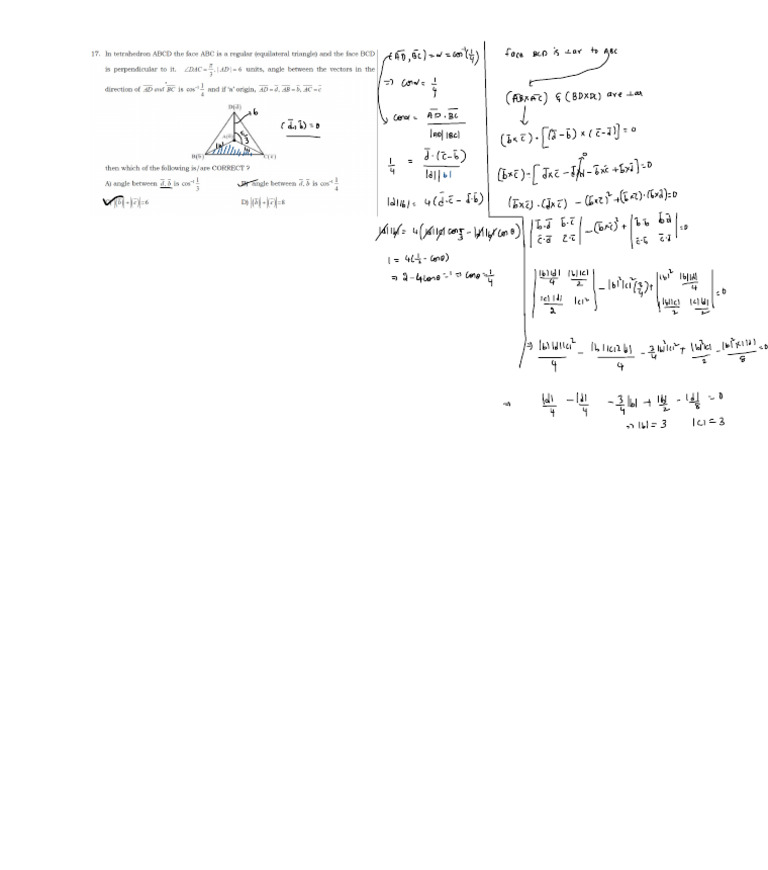 17. In tetrahedron ABCD the face ABC is a regular (equilateral triangle) and the face BCD
is perpendicular to it. ∠DAC = π/3, |AD| = 6 units, angle between the vectors in the
direction of A̅D̅ and B̅C̅ is cos⁻¹ 1/4 and if 'a' origin, A̅D̅ = d̅, A̅B̅ = b̅, A̅C̅ = c̅
D(d̅)
6
(d̅, b̅) = θ
B(b̅) C(c̅)
then which of the following is/are CORRECT ?
A) angle between d̅, b̅ is cos⁻¹ 1/3 B) angle between d̅, b̅ is cos⁻¹ 1/4
C) |b̅| + |c̅| = 6 D) |b̅| + |c̅| = 8
(A̅D̅, B̅C̅) = α = cos⁻¹(1/4)
⇒ cosα = 1/4
cosα = A̅D̅ · B̅C̅ / |AD| |BC|
1/4 = d̅ · (c̅ - b̅) / |d| |b|
|d| |b| = 4 (d̅·c̅ - d̅·b̅)
|d| |b| = 4 (|d| |c| cos π/3 - |d| |b| cosθ)
1 = 4(1/2 - cosθ)
⇒ 2 - 4cosθ = 1 ⇒ cosθ = 1/4
face BCD is ⊥ar to ABC
(A̅B̅×A̅C̅) & (BD×DC) are ⊥ar
(b̅×c̅) · [(d̅ - b̅) × (c̅ - d̅)] = 0
(b̅×c̅) · [d̅×c̅ - d̅×d̅ - b̅×c̅ + b̅×d̅] = 0
0
(b̅×c̅)·(d̅×c̅) - (b̅×c̅)² + (b̅×c̅)·(b̅×d̅) = 0
|b̅·d̅ b̅·c̅| - (b̅×c̅)² + |b̅·b̅ b̅·d̅| = 0
|c̅·d̅ c̅·c̅| |c̅·b̅ c̅·d̅|
|b||d|/4 |b||c|/2 - |b|²|c|²(3/4) + |b|² |b||d|/4 = 0
|c||d|/2 |c|² |b||c|/2 |c||d|/2
⇒ |b||d||c|²/4 - |b||c|²|d|/4 - 3/4 |b|²|c|² + |b|²|c|/2 - |b|²|c||d|/8 = 0
⇒ |d|/4 - |d|/4 - 3/4 |b| + |b|/2 - |d|/8 = 0
⇒ |b| = 3 |c| = 3